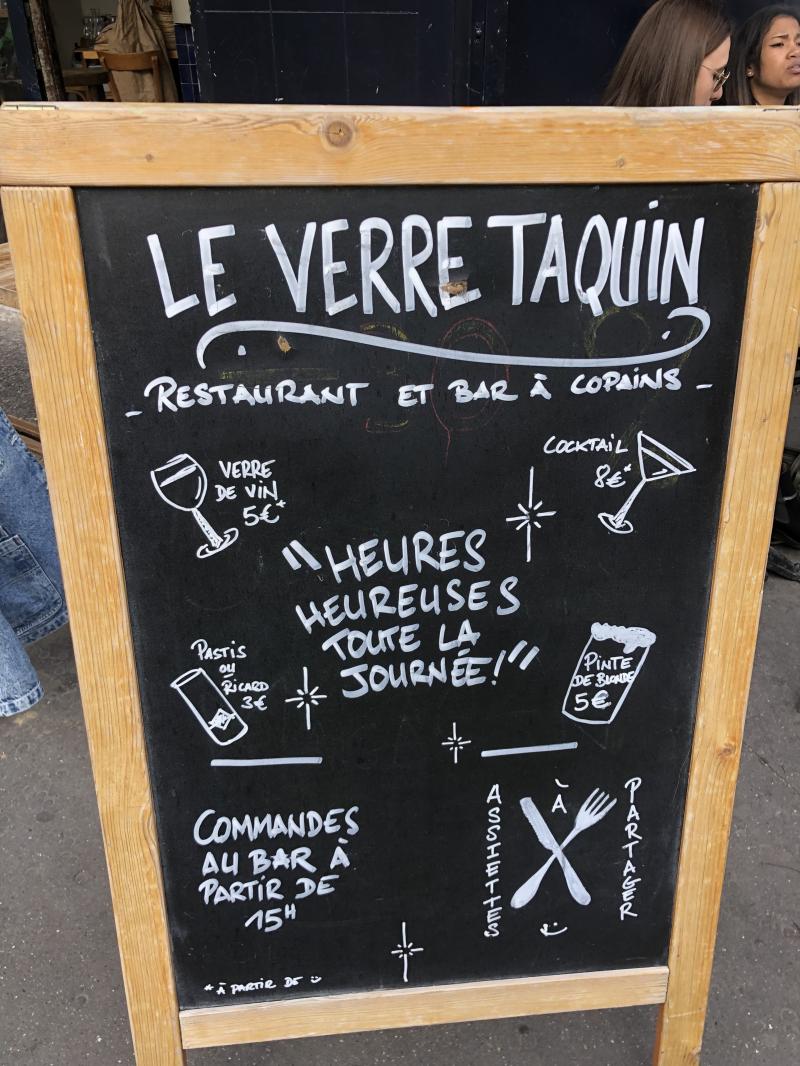 LE VERRE TAQUIN
- RESTAURANT ET BAR À COPAINS -
VERRE
DE VIN
5€*
COCKTAIL
8€*
"HEURES
HEUREUSES
TOUTE LA
JOURNÉE!"
PASTIS
OU
RICARD
3€
PINTE
DE BLONDE
5€
COMMANDES
AU BAR À
PARTIR DE
15H
ASSIETTES
À
PARTAGER
*À PARTIR DE